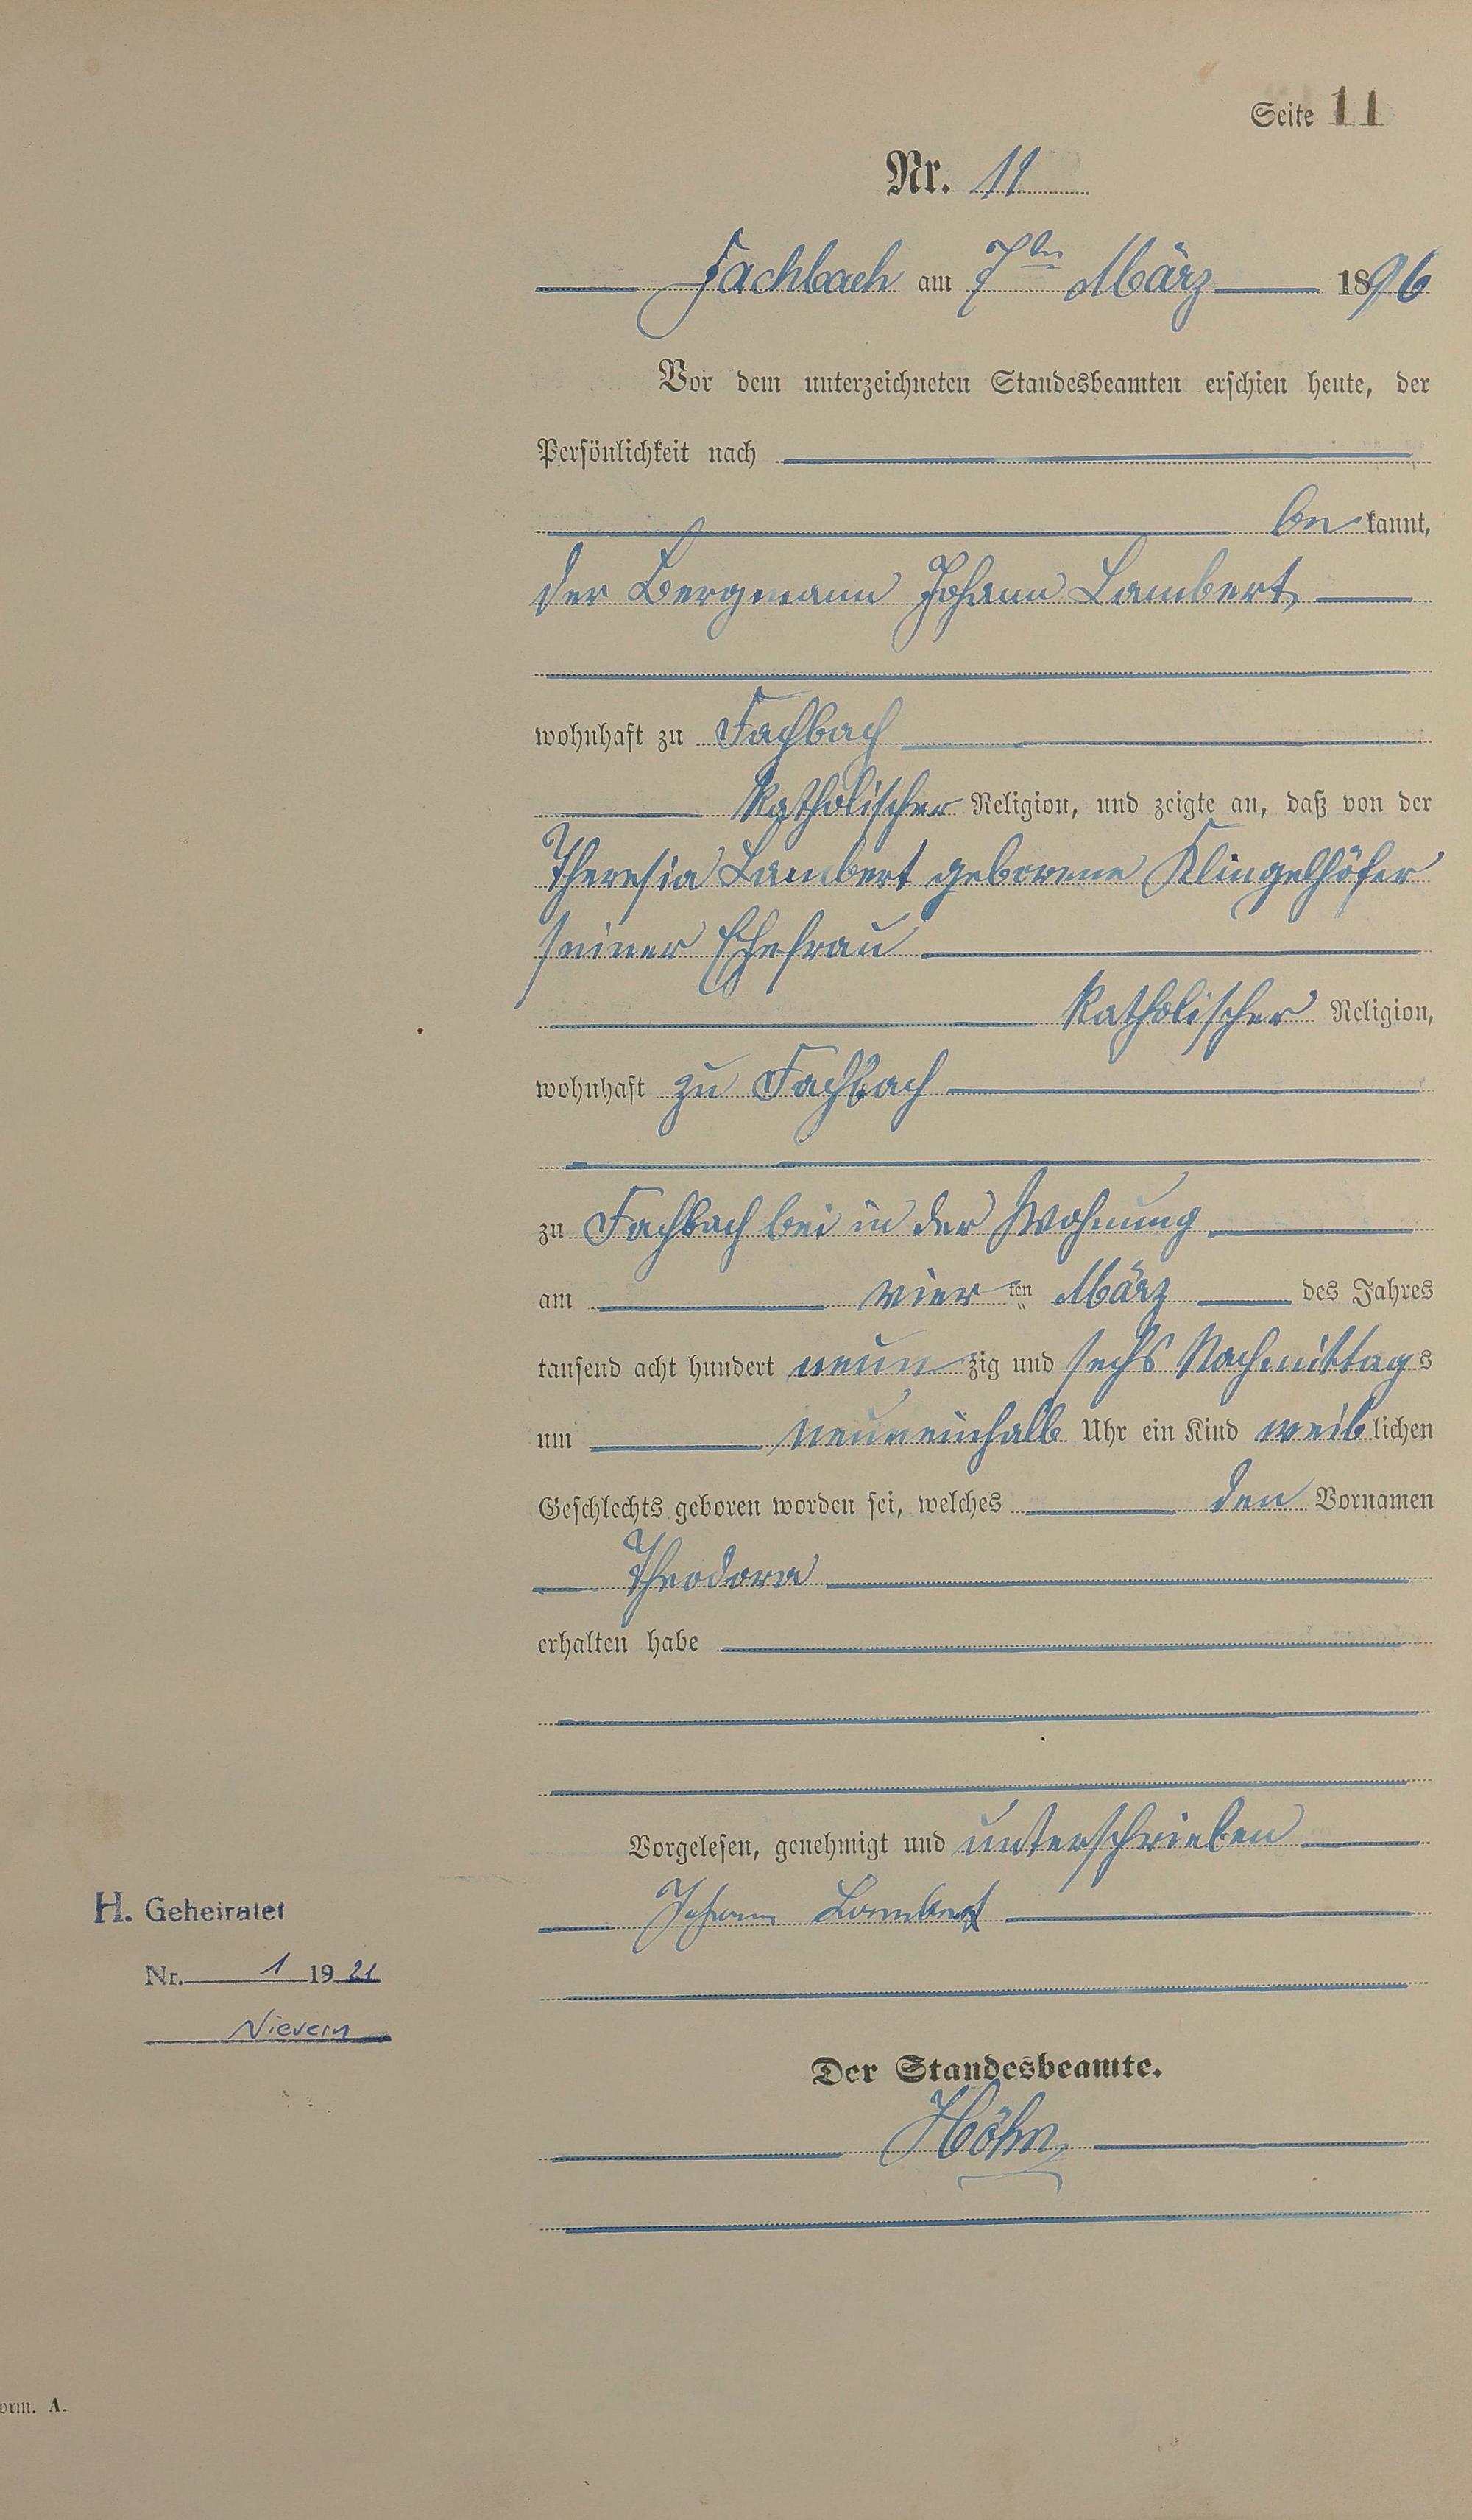 Seite 11
Nr. 11
Fachbach am 7ten März 1896
Vor dem unterzeichneten Standesbeamten erschien heute, der
Persönlichkeit nach
be kannt,
der Bergmann Johann Lambert
wohnhaft zu Fachbach
katholischer Religion, und zeigte an, daß von der
Theresia Lambert geborene Klingelhöfer
seiner Ehefrau
katholischer Religion,
wohnhaft zu Fachbach
zu Fachbach bei in der Wohnung
am vier ten März des Jahres
tausend acht hundert neun zig und sechs Nachmittags
um neuneinhalb Uhr ein Kind weib lichen
Geschlechts geboren worden sei, welches den Vornamen
Theodora
erhalten habe
Vorgelesen, genehmigt und unterschrieben
Johann Lambert
H. Geheiratet
Nr. 1 1921
Nievern
Der Standesbeamte.
Höhn
orm. A.